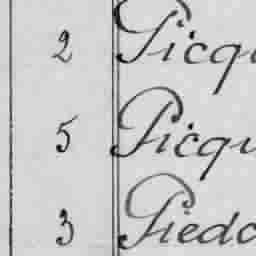 2 Picqu
5 Picqu
3 Piedo